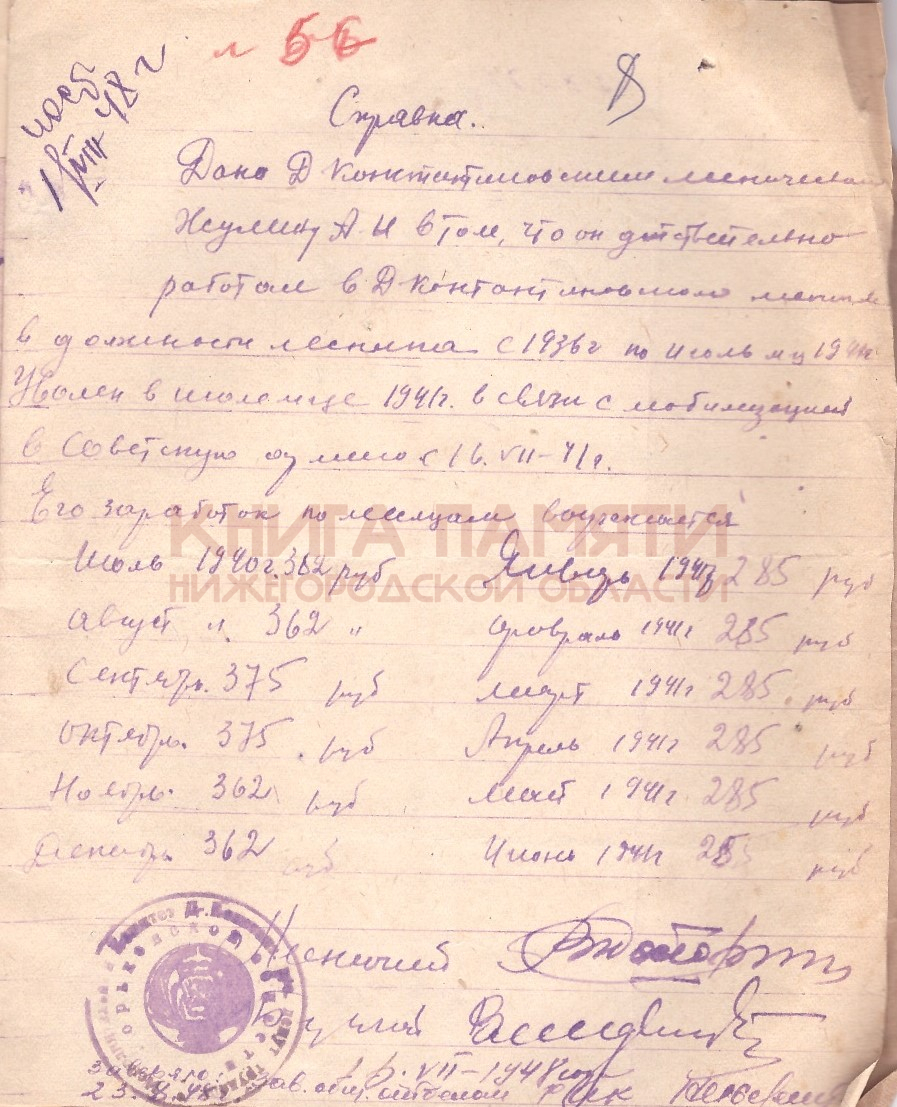 л 56
пост
1/VIII 48 г
Справка.
Дано Д Константиновским лесничеством
Жулину А. И в том, что он действительно
работал в Д Константиновском
в должности лесника с 1936 г по июль м-ц 1941г
Уволен в июле м-це 1941г. в связи с мобилизацией
в Советскую армию с 16.VII-41г.
Его заработок по месяцам выражается
КНИГА ПАМЯТИ
НИЖЕГОРОДСКОЙ ОБЛАСТИ
Июль 1940г. 362 руб Январь 1941г 285 руб
август " 362 " февраль 1941г 285 руб
Сентябр. 375 руб март 1941г 285 руб
октябр. 375 руб Апрель 1941г 285 руб
Ноябр. 362 руб май 1941г. 285 руб
Декабр. 362 руб Июнь 1941г 285 руб
Лесничий
VII-1948 года
Заверяю: Зав. общ. отделом РИК